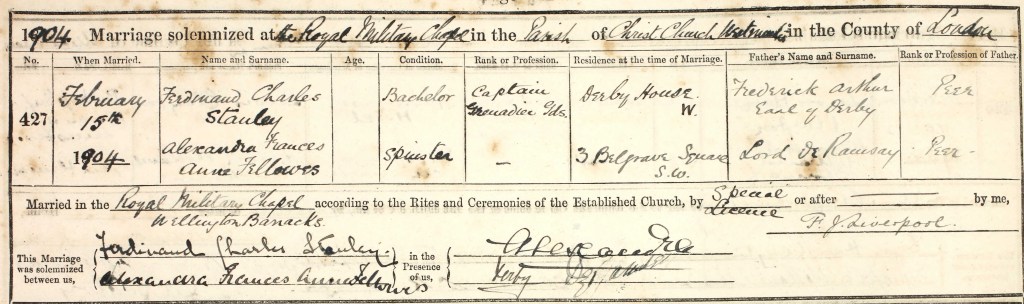 1904 Marriage solemnized at the Royal Military Chapel in the Parish of Christ Church Westminster in the County of London
No. When Married. Name and Surname. Age. Condition. Rank or Profession. Residence at the time of Marriage. Father's Name and Surname. Rank or Profession of Father.
427 February 15th Ferdinand Charles Stanley Bachelor Captain Grenadier Gds. Derby House W. Frederick Arthur Earl of Derby Peer
1904 Alexandra Frances Anne Fellowes Spinster — 3 Belgrave Square S.W. Lord De Ramsay Peer
Married in the Royal Military Chapel according to the Rites and Ceremonies of the Established Church, by Special Licence or after by me,
Wellington Barracks. F. J. Liverpool.
This Marriage was solemnized between us, Ferdinand Charles Stanley in the Presence of us, Alexandra
Alexandra Frances Anne Fellowes Derby